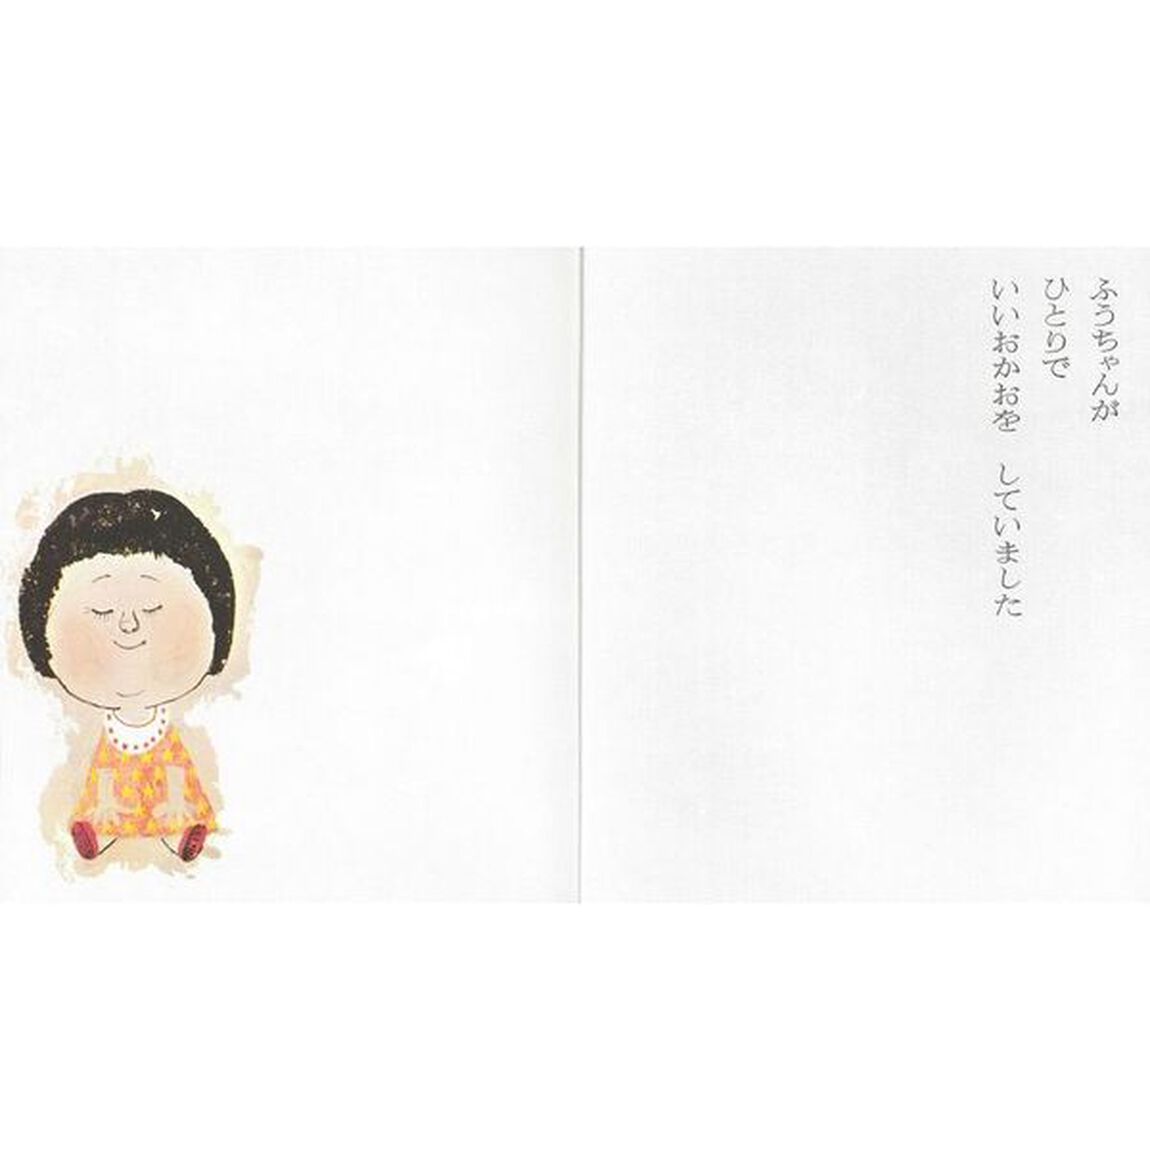 ふうちゃんが
ひとりで
いいおかおを　していました